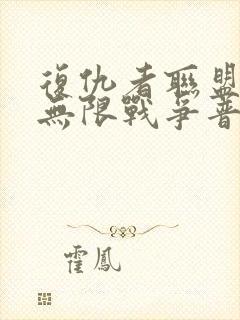 復仇者聯盟
無限戰爭普
霍鳳